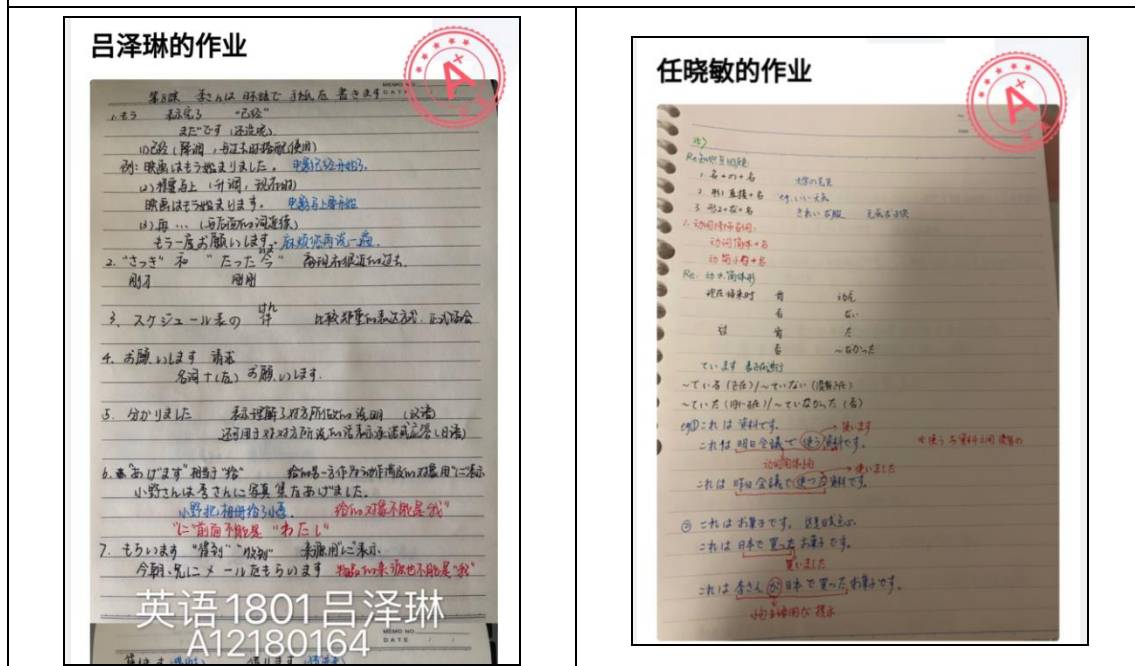 吕泽琳的作业
A
MEMO NO.
DATE
第8課 李さんは 日本語で 手紙を 書きます
1.もう 表示完了 "已经"
まだです (还没呢)
(1)已经 (降调,与过去时搭配使用)
例: 映画はもう始まりました。 电影已经开始了.
(2)将要马上 (升调,现在时)
映画はもう始まります。 电影马上要开始
(3)再 … (与后面的词连读)
もう一度お願いします. 麻烦您再说一遍.
2. "さっき" 和 "たった今" 离现在很近的过去.
刚才 刚刚
けん
3、スケジュール表の 件 比较郑重的表达方式. 正式场合
4、お願いします 请求
名词+(を) お願いします.
5、分かりました 表示理解了对方所做的说明 (汉语)
还可用于对对方所说的话表示承诺或应答(日语)
6. "あげます"相当于"给"
小野さんは李さんに写真集をあげました.
小野把相册给了小李. 给的对象不能是"我"
"に"前面不能是 "わたし"
7、もらいます "得到" "收到" 来源用"に"表示.
今朝、兄にメールをもらいます 物品的来源也不能是"我"
英语1801吕泽琳
A12180164
MEMO NO.
DATE
任晓敏的作业
A
1. 名+の+名 大学の先生
2. 形1直接+名 eg. いい天気
3. 形2+な+名 きれいな服
动词简体+名
动简小句+名
Re: 动词简体形
た
~なかった
ています 表示在进行
~ている (存在)/~ていない
~ていた /~ていなかった
eg①これは 資料です。 使います
これは 明日会議で 使う 資料です。
使いました
これは 昨日会議で使った資料です。
② これは お菓子です。 这是点心.
これは 日本で 買った お菓子です。
買いました
これは 李さんが 日本で 買った お菓子です。